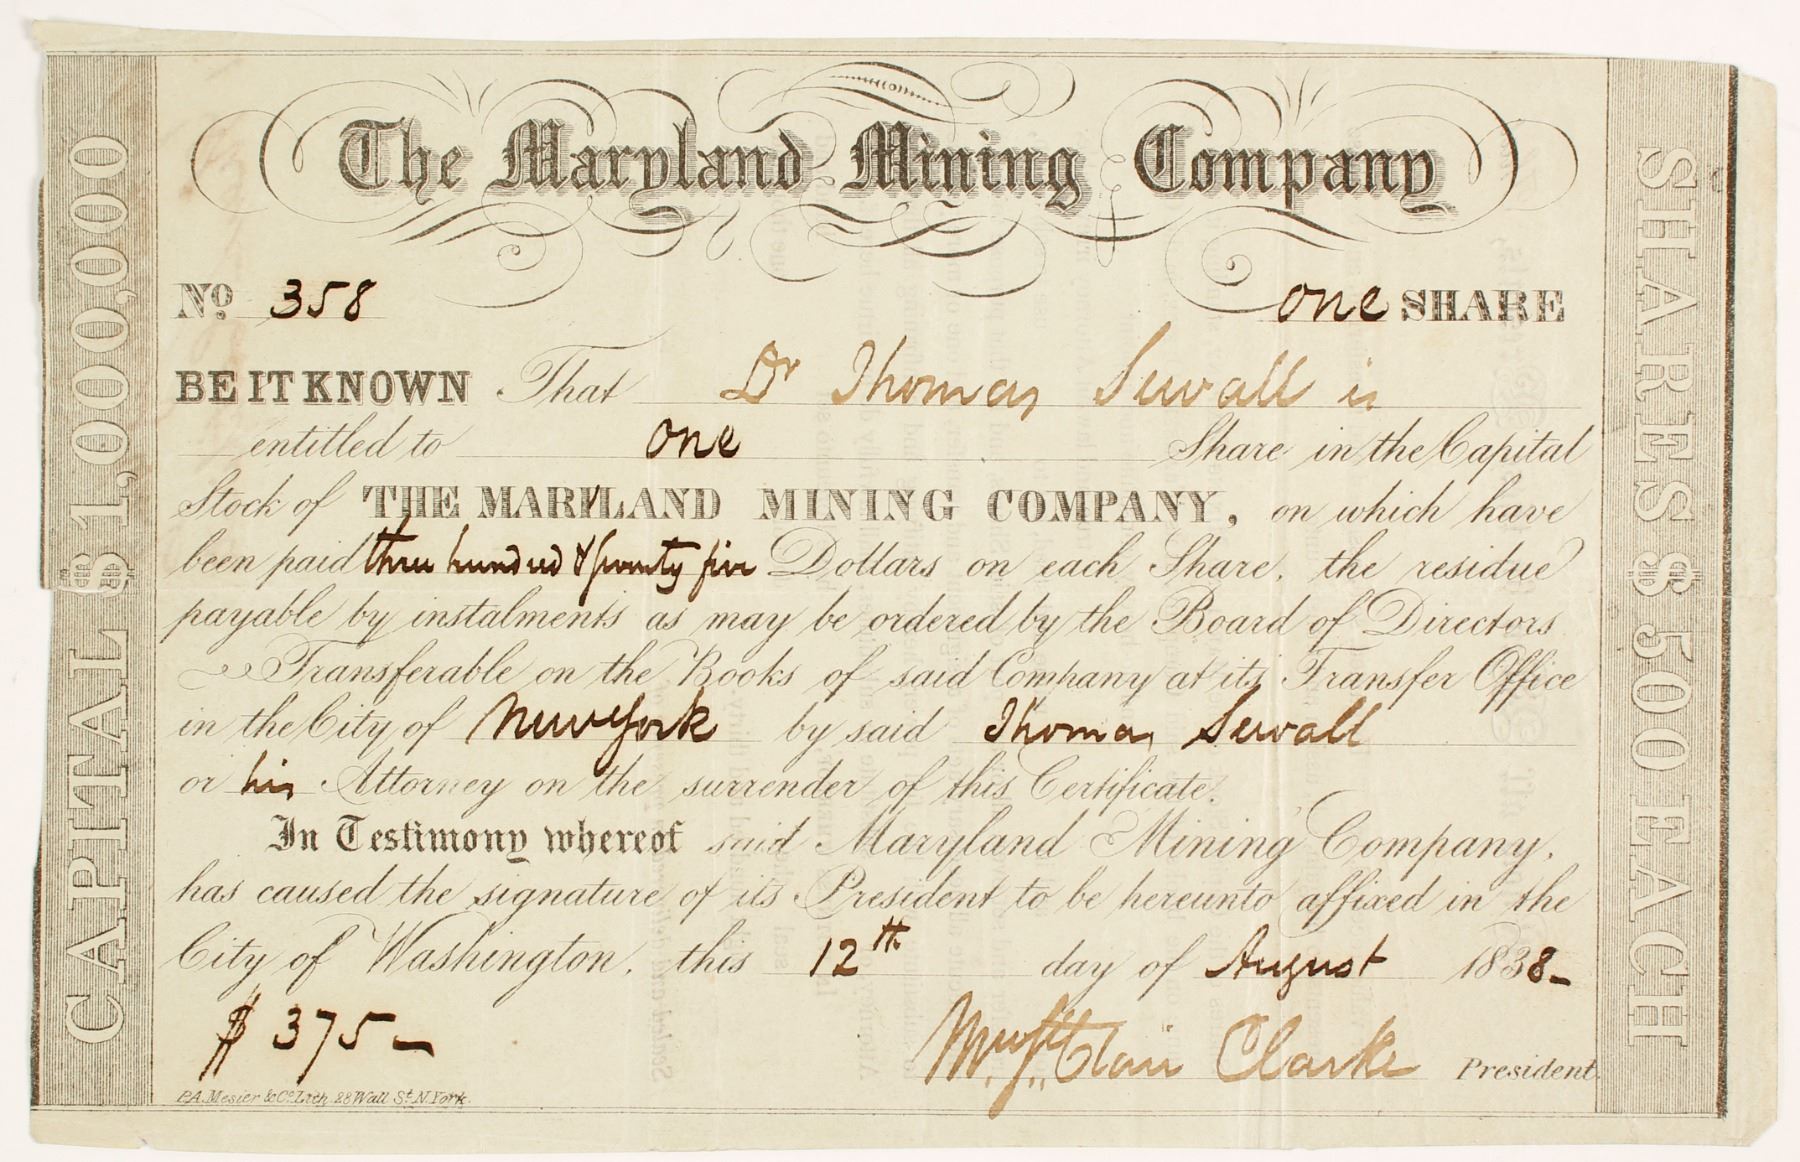 The Maryland Mining Company
No. 358 one SHARE
BE IT KNOWN That Dr Thomas Sewall is
entitled to one Share in the Capital
Stock of THE MARYLAND MINING COMPANY, on which have
been paid three hundred & seventy five Dollars on each Share, the residue
payable by instalments as may be ordered by the Board of Directors
Transferable on the Books of said Company at its Transfer Office
in the City of New York by said Thomas Sewall
or his Attorney on the surrender of this Certificate.
In Testimony whereof said Maryland Mining Company,
has caused the signature of its President to be hereunto affixed in the
City of Washington, this 12th day of August 1838-
$375-
Wm. St. Clair Clarke President
P.A. Mesier & Co. Lith. 28 Wall St. N. York.
CAPITAL $1,000,000
SHARES $500 EACH